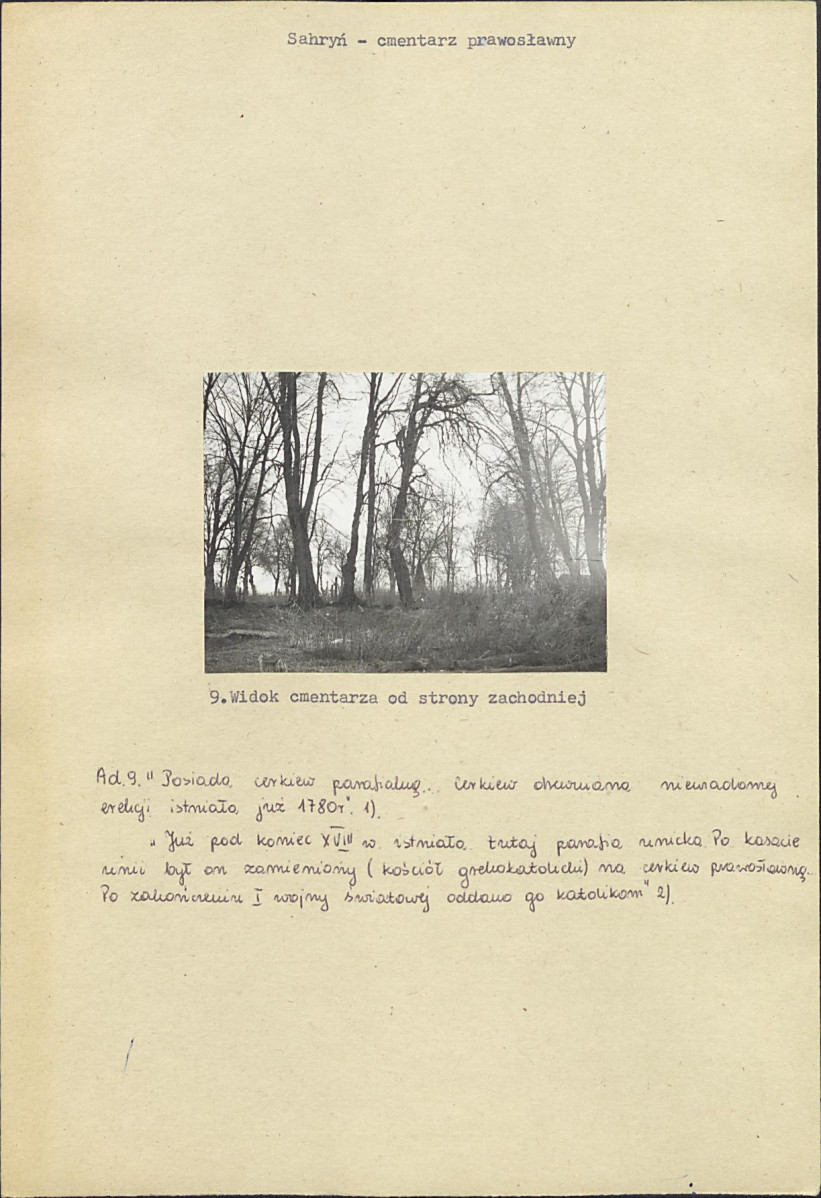 Sahryń - cmentarz prawosławny
9.Widok cmentarza od strony zachodniej
Ad.9. " Posiada cerkiew parafialną... Cerkiew drewniana niewiadomej
erekcji istniała już 1780r". 1).
„ Już pod koniec XVIII w. istniała tutaj parafia unicka. Po kasacie
unii był on zamieniony ( kościół grekokatolicki) na cerkiew prawosławną..
Po zakończeniu I wojny światowej oddano go katolikom" 2).